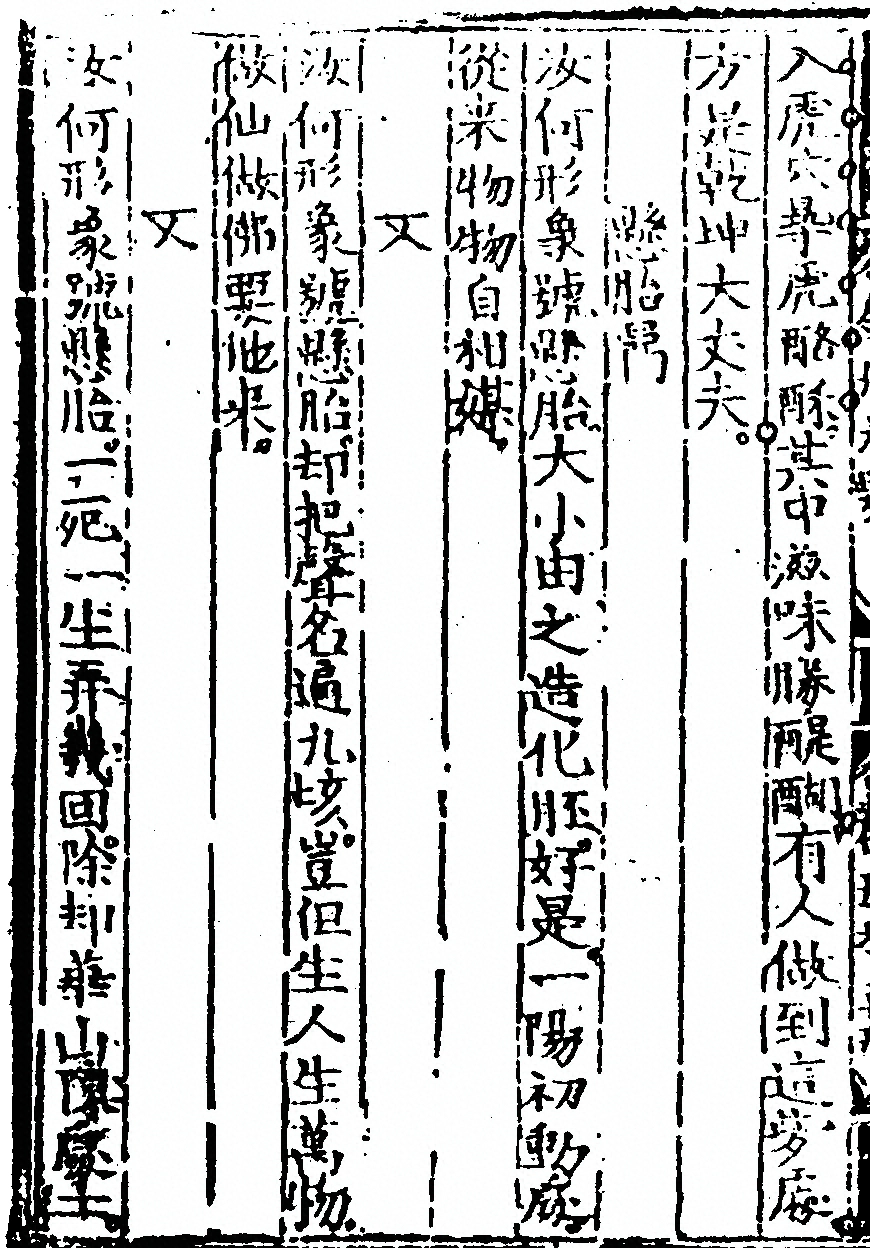 入虎穴尋虎酪酥其中滋味勝醍醐有人做到這夢處
方是乾坤大丈夫
懸胎鼎
汝何形象號懸胎大小由之造化胚好是一陽初動處
從来物物自和媒
又
汝何形象號懸胎却把聲名遍九垓豈但生人生萬物
做仙做佛要他来
又
汝何形象號懸胎一二死一生弄幾回除却華山陳處士